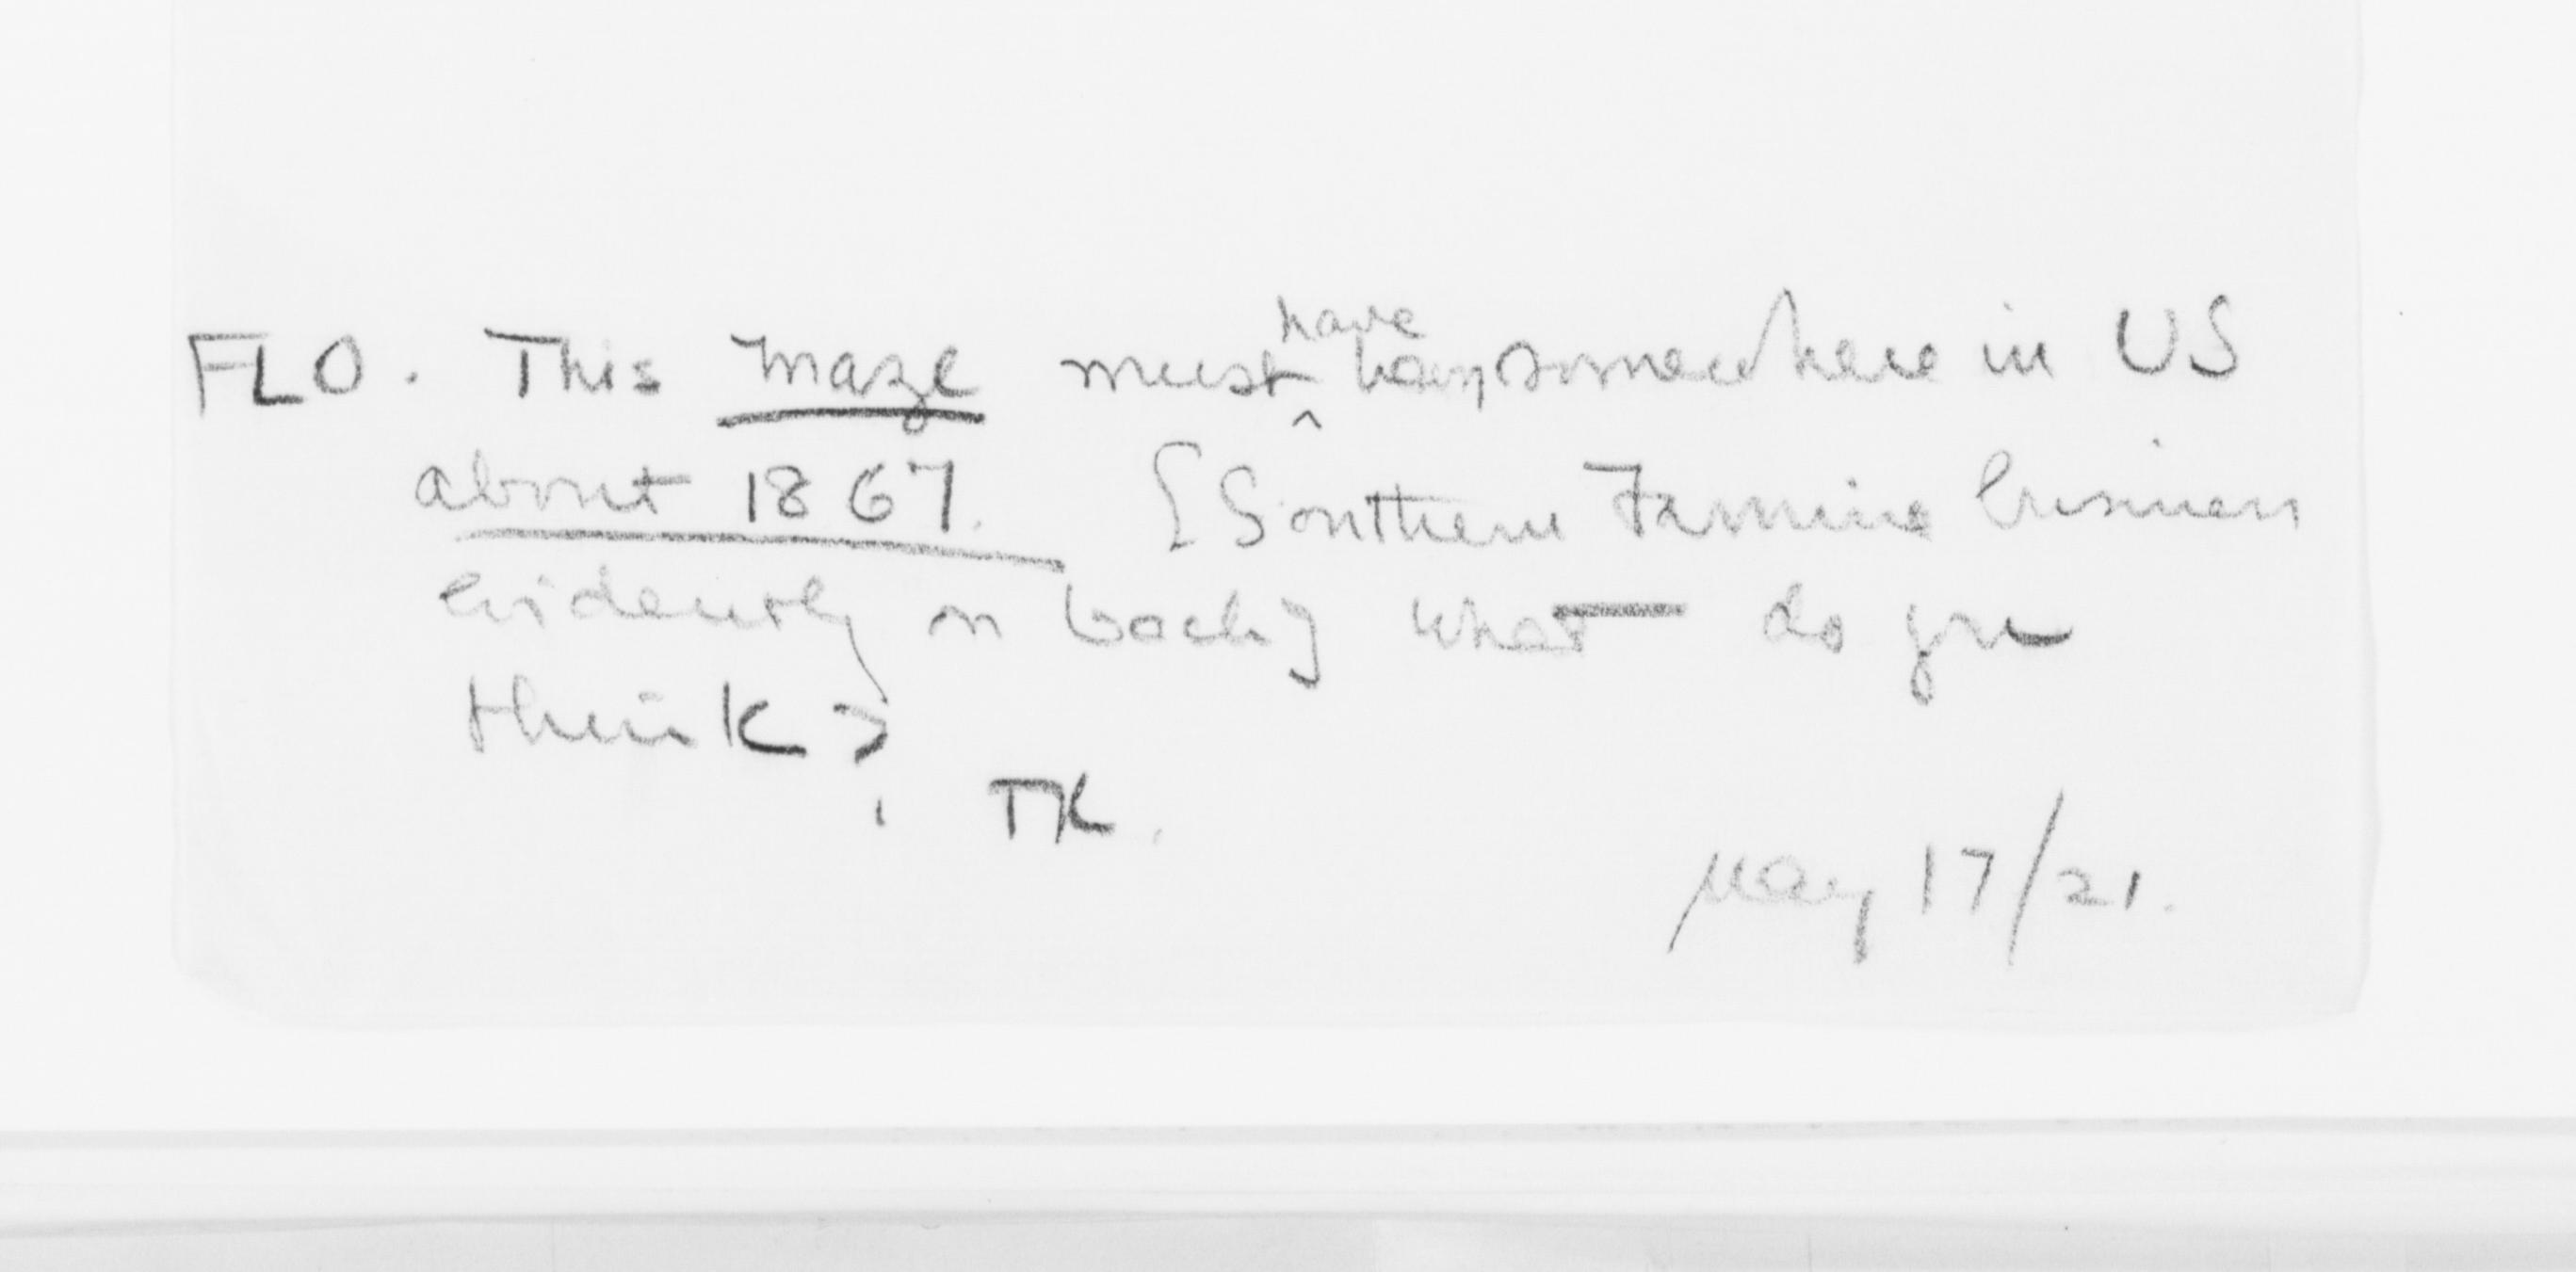 FLO. This maze must have been somewhere in US
about 1867. [Southern Famine business
evidently on back] what do you
think?
TK.
May 17/21.